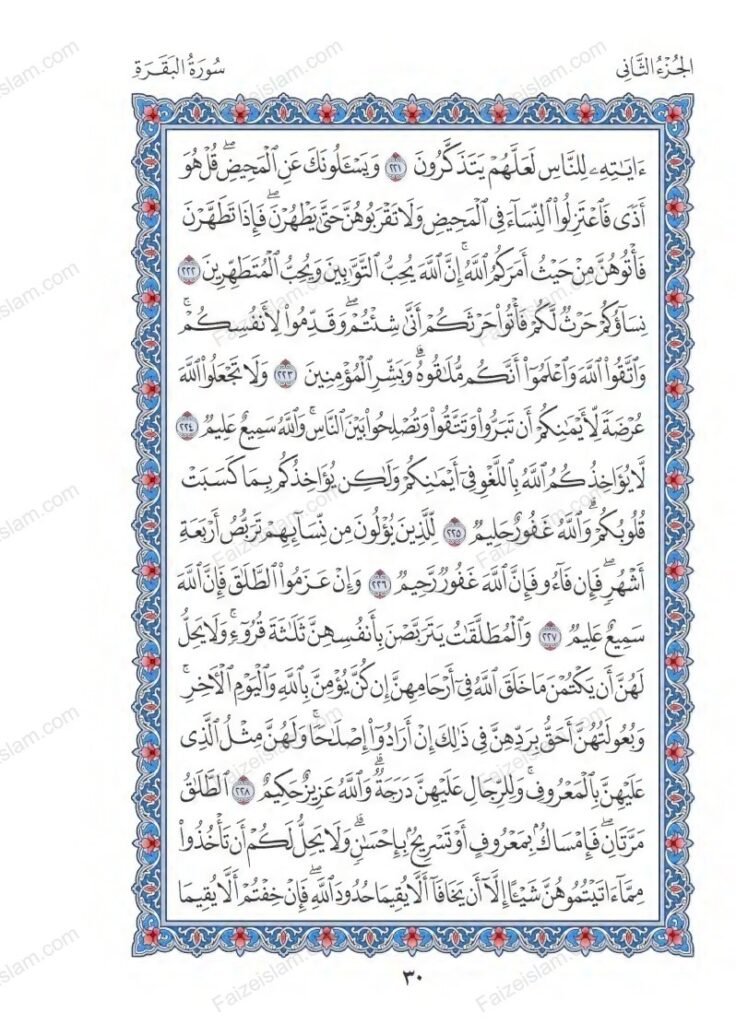 الجُزْءُ الثَّانِي
سُورَةُ البَقَرَةِ
ءَايَٰتِهِۦ لِلنَّاسِ لَعَلَّهُمْ يَتَذَكَّرُونَ ٢٢١ وَيَسْـَٔلُونَكَ عَنِ ٱلْمَحِيضِ ۖ قُلْ هُوَ
أَذًى فَٱعْتَزِلُوا۟ ٱلنِّسَآءَ فِى ٱلْمَحِيضِ وَلَا تَقْرَبُوهُنَّ حَتَّىٰ يَطْهُرْنَ ۖ فَإِذَا تَطَهَّرْنَ
فَأْتُوهُنَّ مِنْ حَيْثُ أَمَرَكُمُ ٱللَّهُ ۚ إِنَّ ٱللَّهَ يُحِبُّ ٱلتَّوَّٰبِينَ وَيُحِبُّ ٱلْمُتَطَهِّرِينَ ٢٢٢
نِسَآؤُكُمْ حَرْثٌ لَّكُمْ فَأْتُوا۟ حَرْثَكُمْ أَنَّىٰ شِئْتُمْ ۖ وَقَدِّمُوا۟ لِأَنفُسِكُمْ ۚ
وَٱتَّقُوا۟ ٱللَّهَ وَٱعْلَمُوٓا۟ أَنَّكُم مُّلَٰقُوهُ ۗ وَبَشِّرِ ٱلْمُؤْمِنِينَ ٢٢٣ وَلَا تَجْعَلُوا۟ ٱللَّهَ
عُرْضَةً لِّأَيْمَٰنِكُمْ أَن تَبَرُّوا۟ وَتَتَّقُوا۟ وَتُصْلِحُوا۟ بَيْنَ ٱلنَّاسِ ۗ وَٱللَّهُ سَمِيعٌ عَلِيمٌ ٢٢٤
لَّا يُؤَاخِذُكُمُ ٱللَّهُ بِٱللَّغْوِ فِىٓ أَيْمَٰنِكُمْ وَلَٰكِن يُؤَاخِذُكُم بِمَا كَسَبَتْ
قُلُوبُكُمْ ۗ وَٱللَّهُ غَفُورٌ حَلِيمٌ ٢٢٥ لِّلَّذِينَ يُؤْلُونَ مِن نِّسَآئِهِمْ تَرَبُّصُ أَرْبَعَةِ
أَشْهُرٍ ۖ فَإِن فَآءُو فَإِنَّ ٱللَّهَ غَفُورٌ رَّحِيمٌ ٢٢٦ وَإِنْ عَزَمُوا۟ ٱلطَّلَٰقَ فَإِنَّ ٱللَّهَ
سَمِيعٌ عَلِيمٌ ٢٢٧ وَٱلْمُطَلَّقَٰتُ يَتَرَبَّصْنَ بِأَنفُسِهِنَّ ثَلَٰثَةَ قُرُوٓءٍ ۚ وَلَا يَحِلُّ
لَهُنَّ أَن يَكْتُمْنَ مَا خَلَقَ ٱللَّهُ فِىٓ أَرْحَامِهِنَّ إِن كُنَّ يُؤْمِنَّ بِٱللَّهِ وَٱلْيَوْمِ ٱلْـَٔاخِرِ ۚ
وَبُعُولَتُهُنَّ أَحَقُّ بِرَدِّهِنَّ فِى ذَٰلِكَ إِنْ أَرَادُوٓا۟ إِصْلَٰحًا ۚ وَلَهُنَّ مِثْلُ ٱلَّذِى
عَلَيْهِنَّ بِٱلْمَعْرُوفِ ۚ وَلِلرِّجَالِ عَلَيْهِنَّ دَرَجَةٌ ۗ وَٱللَّهُ عَزِيزٌ حَكِيمٌ ٢٢٨ ٱلطَّلَٰقُ
مَرَّتَانِ ۖ فَإِمْسَاكٌۢ بِمَعْرُوفٍ أَوْ تَسْرِيحٌۢ بِإِحْسَٰنٍ ۗ وَلَا يَحِلُّ لَكُمْ أَن تَأْخُذُوا۟
مِمَّآ ءَاتَيْتُمُوهُنَّ شَيْـًٔا إِلَّآ أَن يَخَافَآ أَلَّا يُقِيمَا حُدُودَ ٱللَّهِ ۖ فَإِنْ خِفْتُمْ أَلَّا يُقِيمَا
٣٠
Faizeislam.com